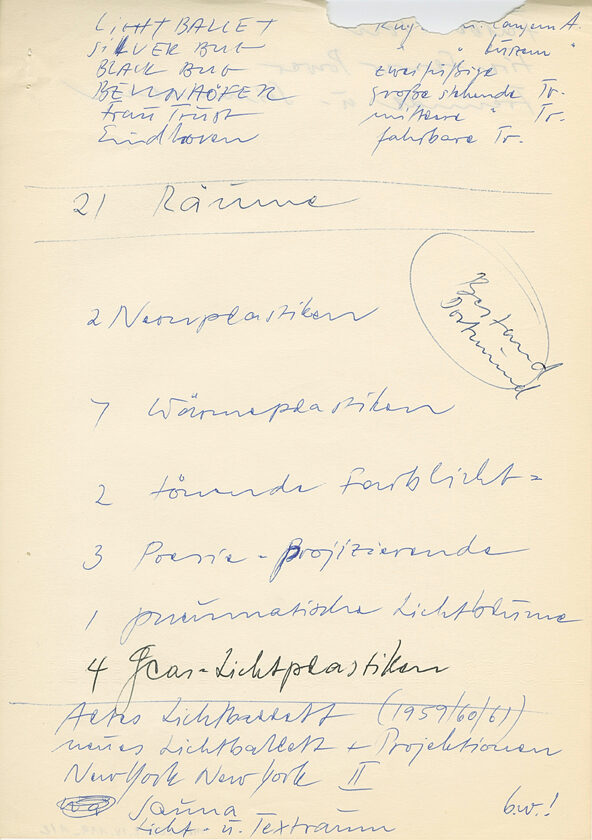 LICHT BALLET
SILVER BUG
BLACK BUG
BELLHÄFER
Frau Trust
Eindhoven
langem A.
" " kurzem "
zweifüßige
große stehende Tr.
mittlere " Tr.
fahrbare Tr.
21 Räume
Bestand
Dortmund
2 Neonplastiken
7 Wärmeplastiken
2 tönende Farblicht=
3 Poesie-Projizierende
1 pneumatische Lichtblume
4 Glas-Lichtplastiken
Altes Lichtballett (1959/60/61)
neues Lichtballett + Projektionen
New York New York II
Sauna
Licht- u. Textraum
b.w.!